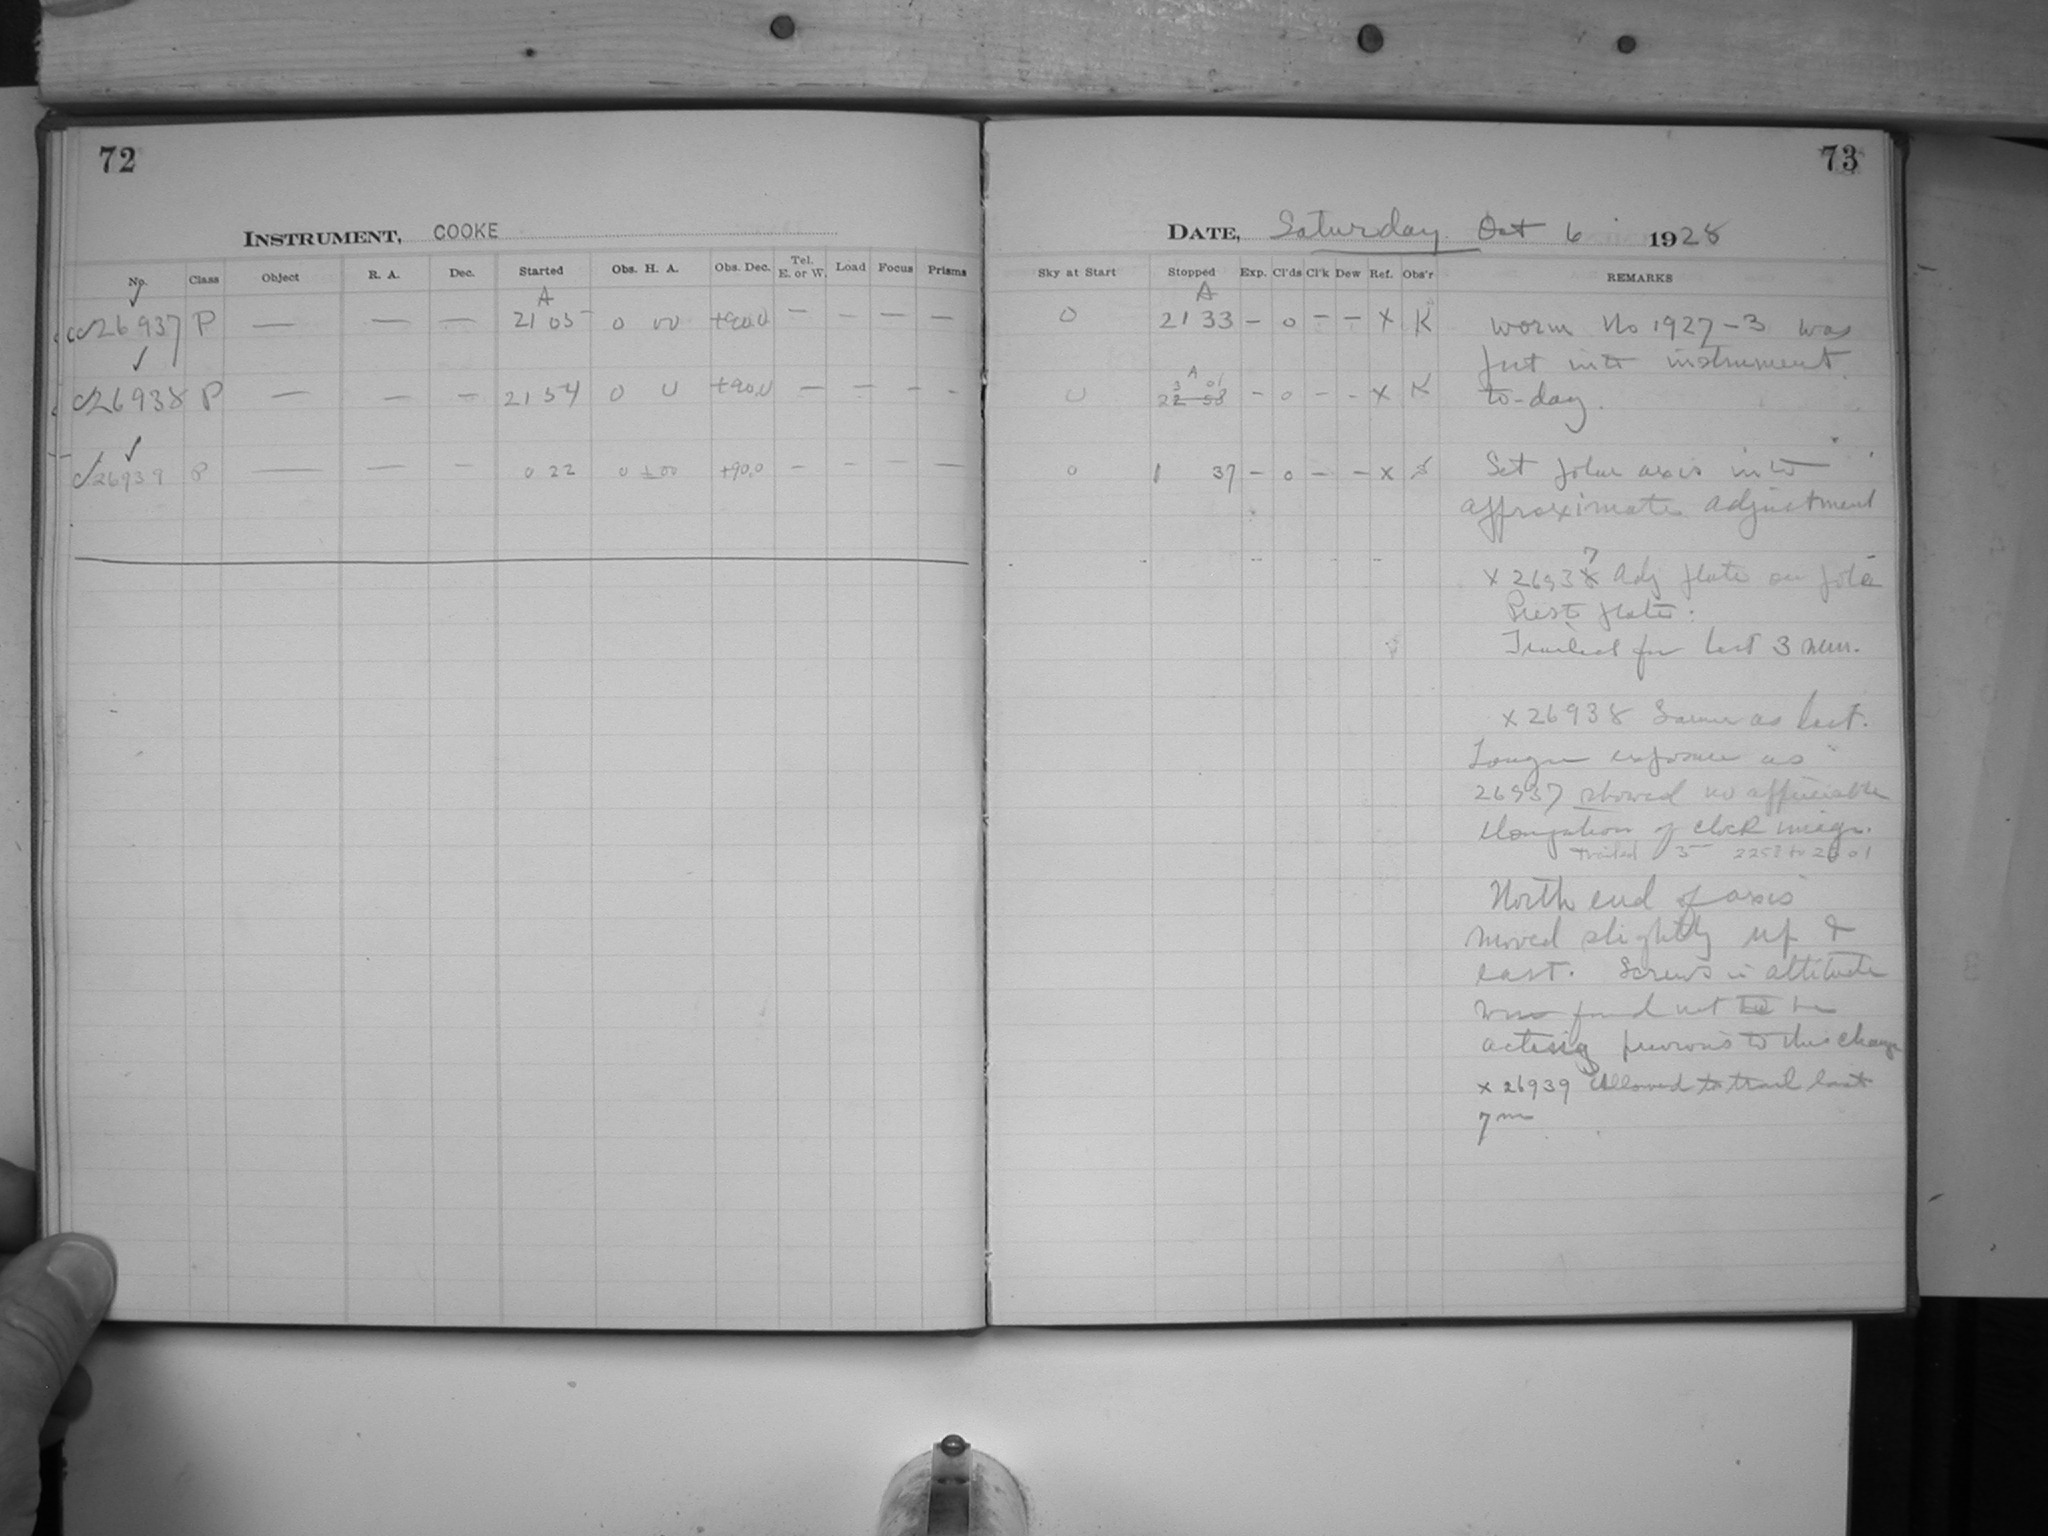 72
INSTRUMENT, COOKE
No. Class Object R. A. Dec. Started Obs. H. A. Obs. Dec. Tel. E. or W. Load Focus Prisms
A
26937 P — — — 21 05 0 00 +90.0 — — — —
26938 P — — — 21 54 0 0 +90.0 — — - -
26939 P — — — 0 22 0 ±00 +90.0 — - — —
73
DATE, Saturday Oct 6 1928
Sky at Start Stopped Exp. Cl'ds Cl'k Dew Ref. Obs'r REMARKS
A
0 21 33 — 0 — — X K
A
3 01
0 22 58 — 0 — — X K
0 1 37 — 0 — — X
Worm No 1927-3 was
put into instrument
to-day.
Set polar axis into
approximate adjustment
7
x 26938 Adj plate on pole
First plate:
Trailed for last 3 min.
x 26938 Same as last.
Longer exposure as
26937 showed no appreciable
elongation of clock image.
trailed 3 2258 to 2301
North end of axis
moved slightly up &
east. Screws in altitude
was found not to be
acting previous to this change
x 26939 Allowed to trail last
7m